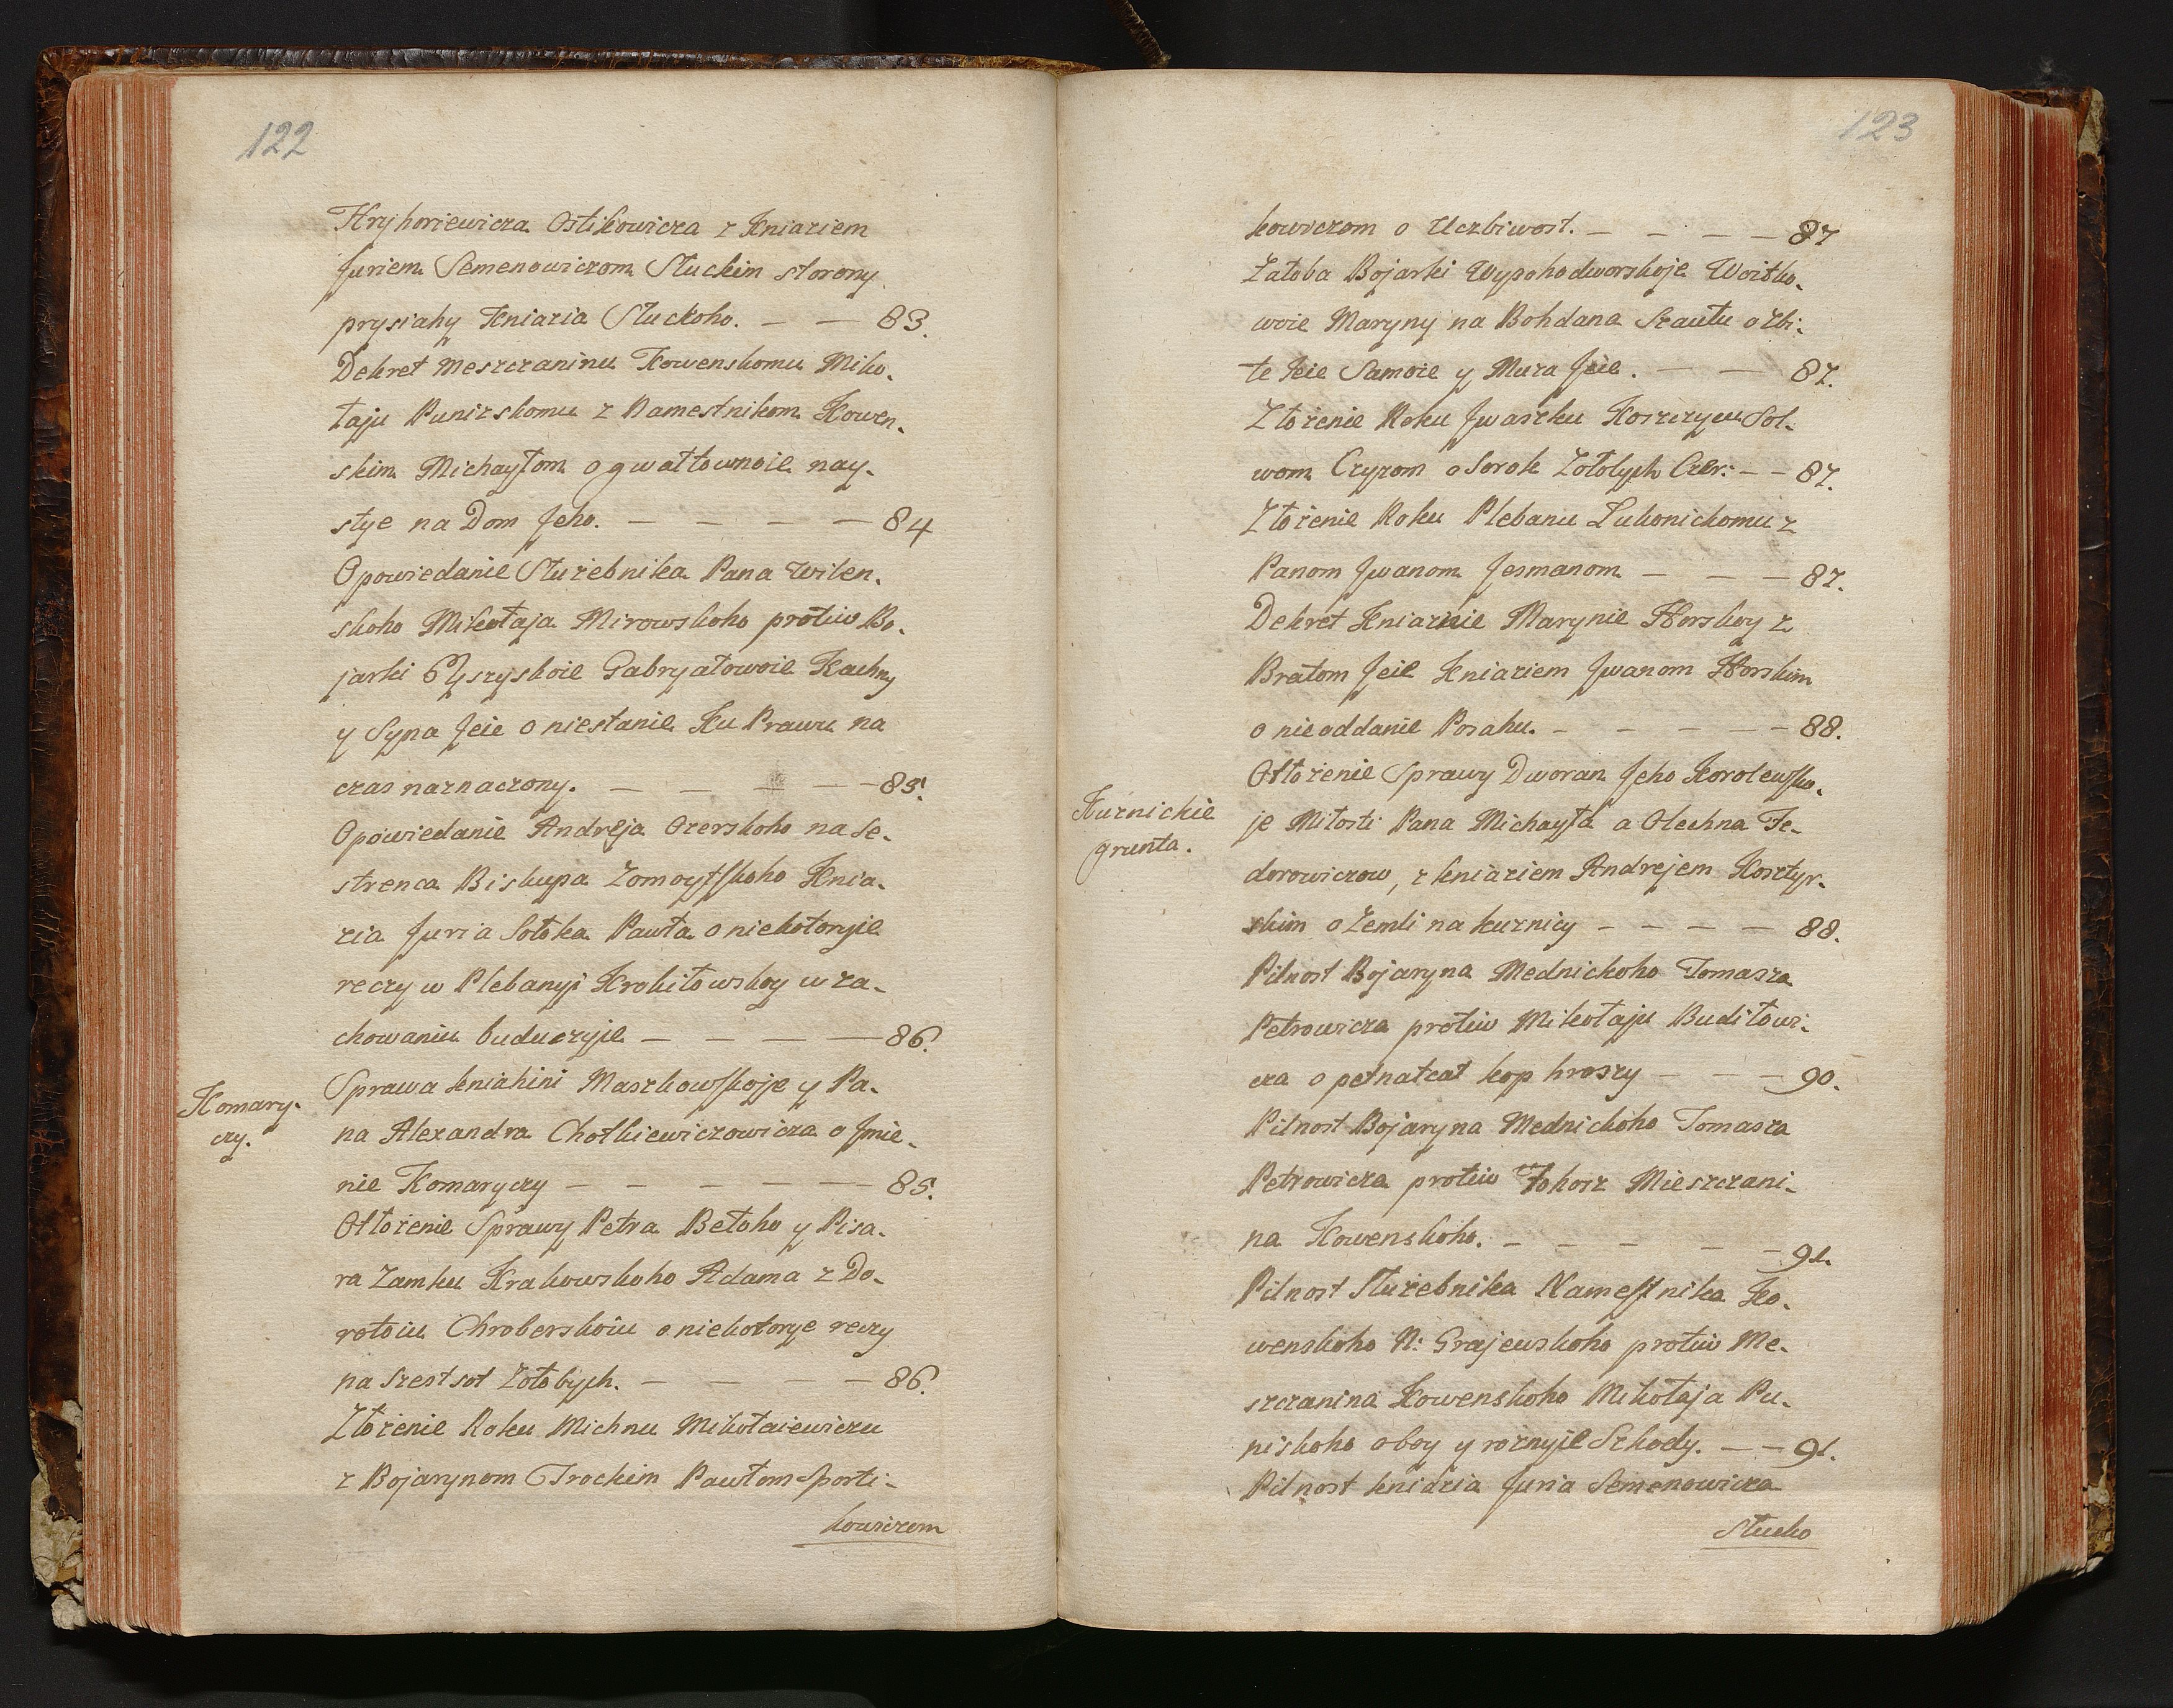 122
Hryhoriewicza Ostikowicza z Kniaziem
Juriem Semenowiczom Słuckim storony
prysiahy Kniazia Słuckoho. — — 83.
Dekret meszczaninu Kowenskomu Miko-
łaju Punizskomu z Namestnikom Kowen-
skim Michayłom o gwałtownoie nay-
stye na Dom Jeho. — — — — 84
Opowiedanie Służebnika Pana Wilen-
skoho Mikołaja Mirowskoho protiw Bo-
jarki Gabryałowoie Kachny
y Syna Jeie o niestanie Ku Prawu na
czas naznaczony. — — — — 85.
Opowiedanie Andreja Ozerskoho na Se-
strenca Biskupa Zomoytskoho Knia-
zia Juria Sołoka Pawła o niekotoryie
reczy w Plebanyi Krokitowskoy w za-
chowaniu buduczyie — — — — 86.
Komary-
czy.
Sprawa kniahini Maszkowskoje y Pa-
na Alexandra Chotkiewiczowicza o Jmie-
nie Komaryczy — — — — — 85.
Otłożenie Sprawy Petra Bełoho y Pisa-
ra Zamku Krakowskoho Adama z Do-
rotoiu Chroberskoiu o niekotorye reczy
na szest sot Zołotych. — — — — 86.
Złożenie Roku Michnu Mikołaiewiczu
z Bojarynom Trockim Pawłom Sporti-
kowiczom
123
kowiczom o Uczbiwost. — — — — 87
Załoba Bojarki Wypohodworskoje Woitko-
woie Maryny na Bohdana Szautu o Zbi-
te Jeie Samoie y Muza Jeie. — — 87.
Złożenie Roku Jwaszku Koszczycu Sol-
wom Czyzom o Sorok Zołotych Czer: — — 87.
Złożenie Roku Plebanu Łukonickomu z
Panom Jwanom Jesmanom — — — 87.
Dekret Kniaznie Marynie Horskoy z
Bratom Jeie Kniaziem Jwanom Horskim
o nie oddanie Posahu. — — — — — 88.
Kuznickie
grunta.
Otłożenie Sprawy Dworan Jeho Korolewsko-
je Miłosti Pana Michayła a Olechna Fe-
dorowiczow, z kniaziem Andrejem Kosztyr-
skim o Zemli na kuznicy — — — — 88.
Pilnost Bojaryna Mednickoho Tomasza
Petrowicza protiw Mikołaju Budiłowi-
cza o petnatcat kop hroszy — — — 90.
Pilnost Bojaryna Mednickoho Tomasza
Petrowicza protiw Johosz Mieszczani-
na Kowenskoho. — — — — — 91.
Pilnost Służebnika Namestnika Ko-
wenskoho N: Grajewskoho protiw Me-
szczanina Kowenskoho Mikołaja Pu-
niskoho o boy y roznyie Szkody. — — 91.
Pilnost kniazia Juria Semenowicza
Słucko